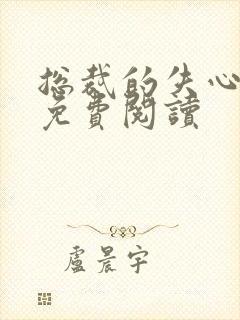 总裁的失心
免費閱讀
盧晨宇